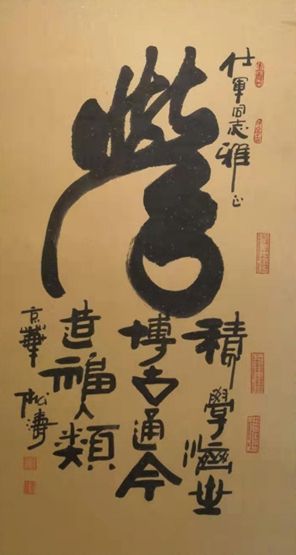 仕軍同志雅正
積學濟世
博古通今
造福人類
京華松濤